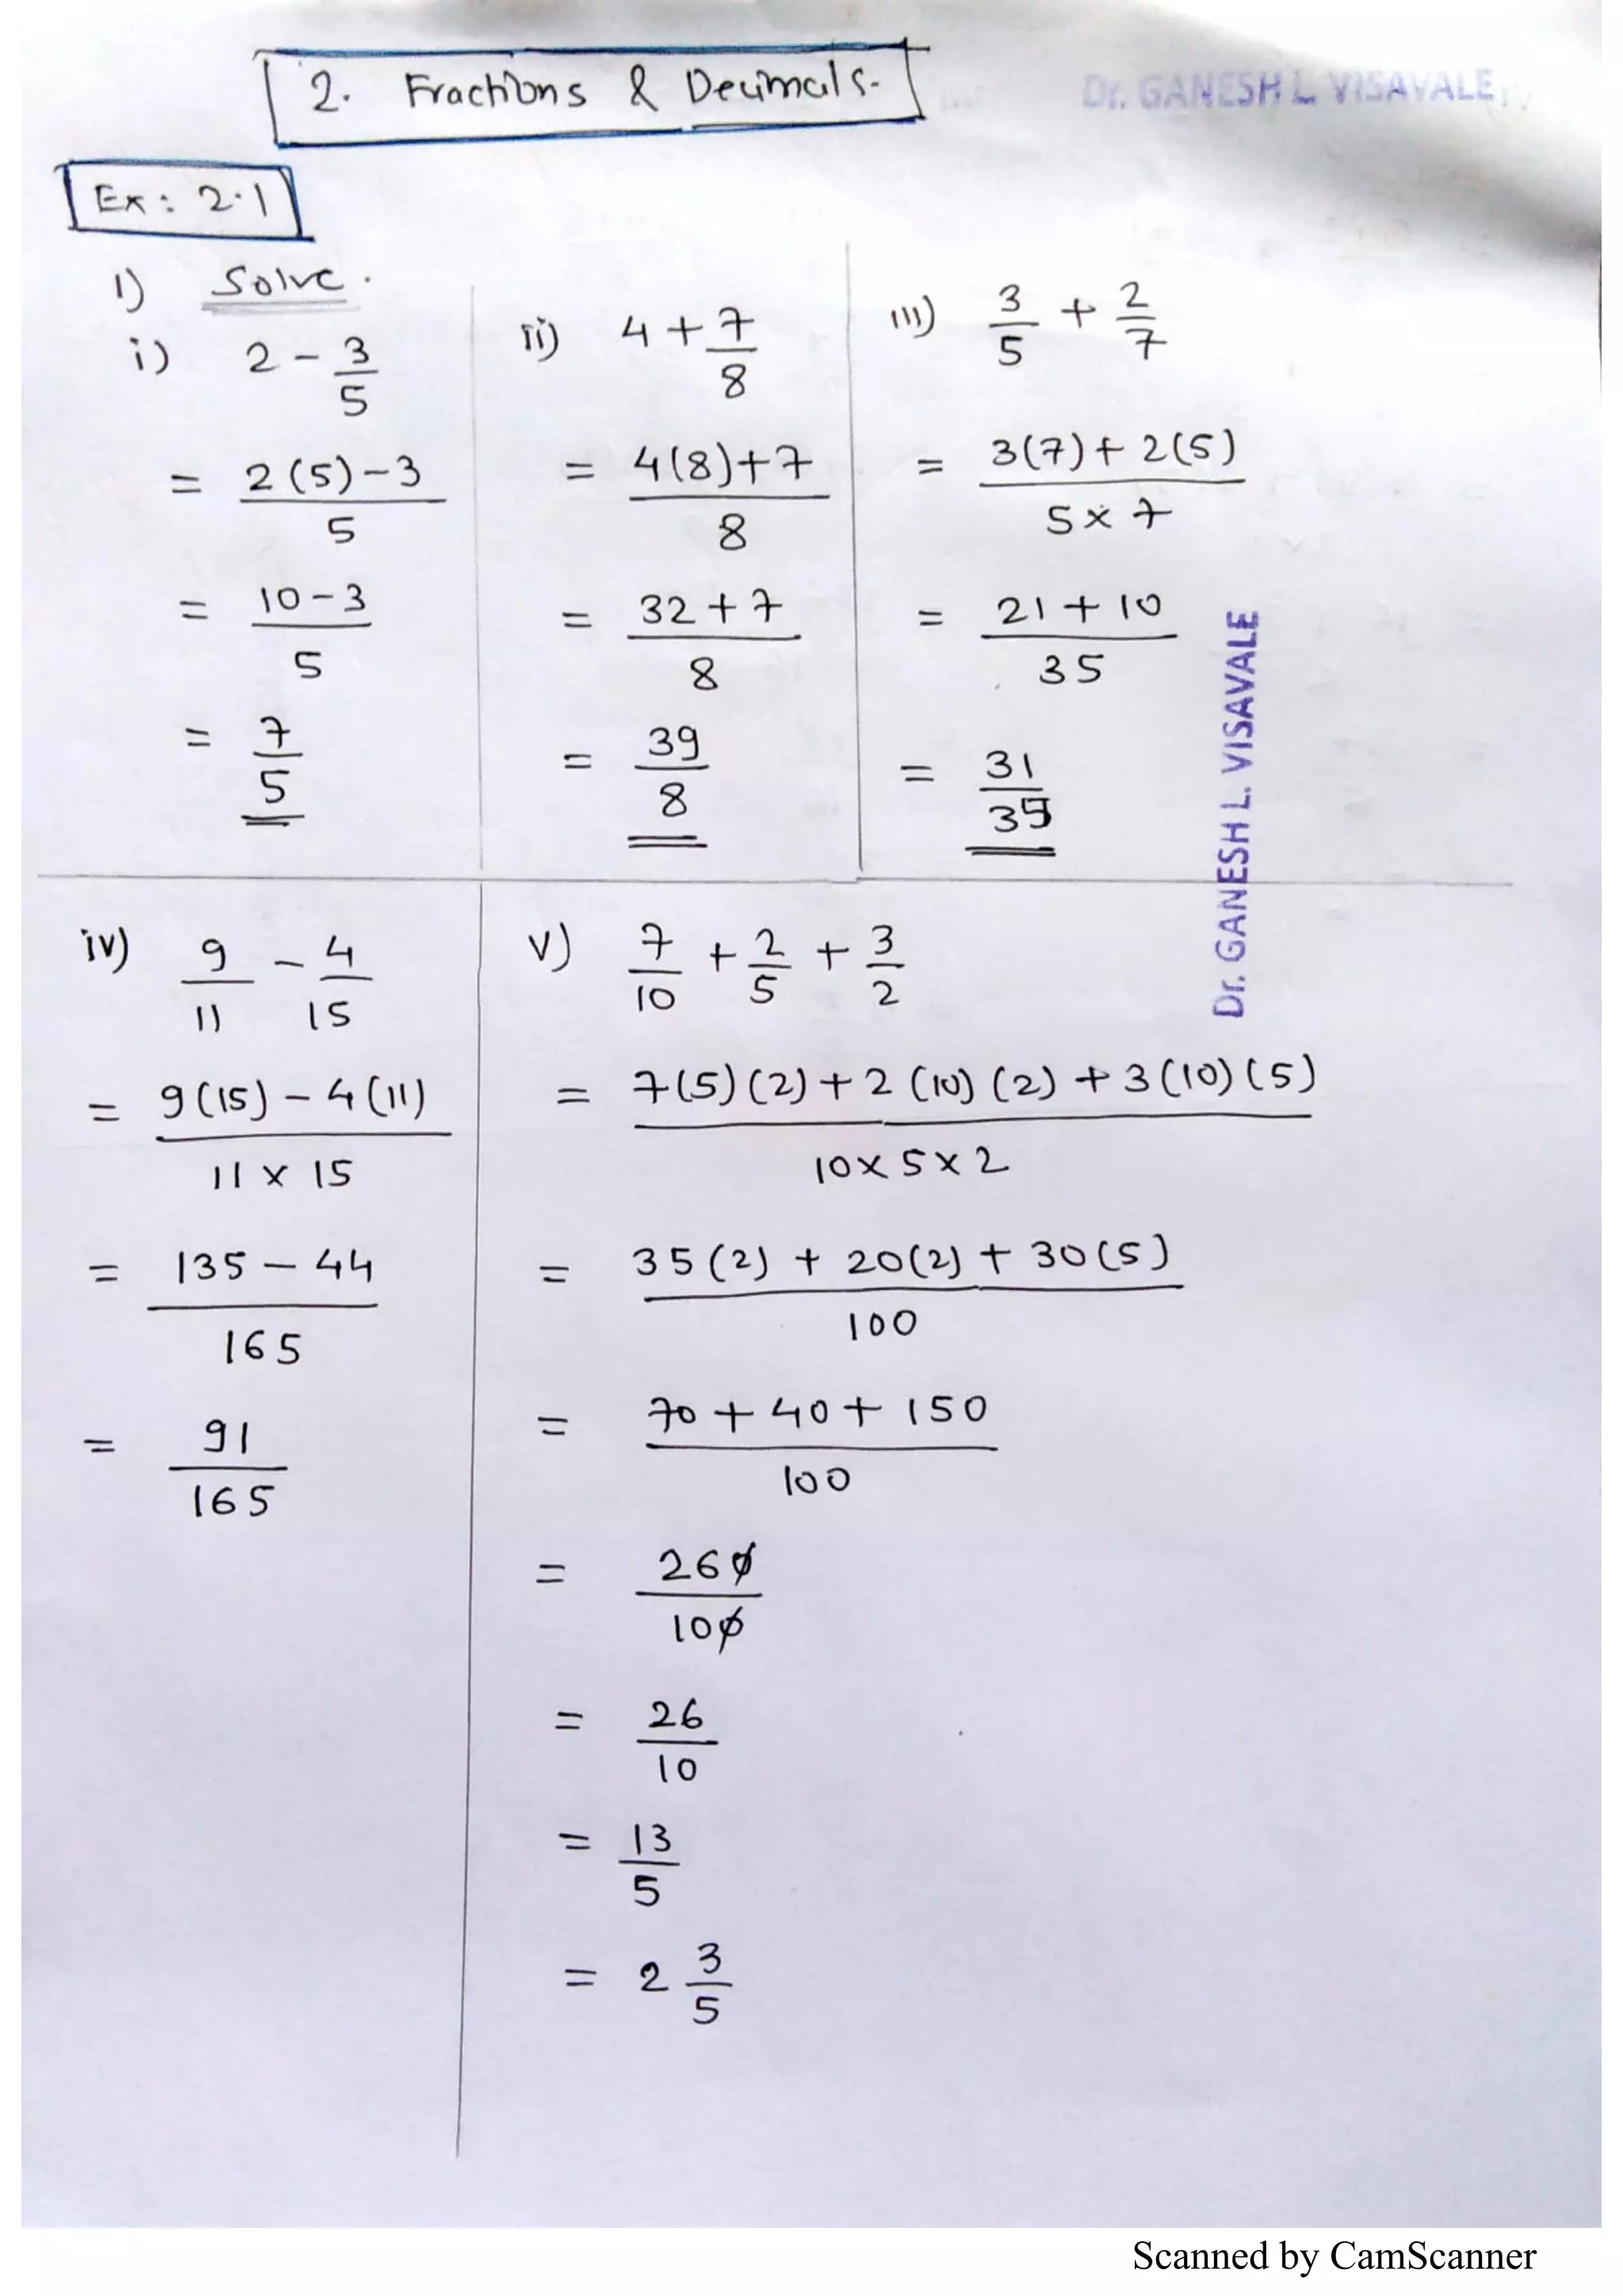 2. Fractions & Decimals.
Dr. GANESH L. VISAVALE
Ex: 2.1
1) Solve.
i) 2 - 3/5
= 2(5)-3 / 5
= 10-3 / 5
= 7/5
ii) 4 + 7/8
= 4(8)+7 / 8
= 32+7 / 8
= 39/8
iii) 3/5 + 2/7
= 3(7)+2(5) / 5×7
= 21+10 / 35
= 31/35
Dr. GANESH L. VISAVALE
iv) 9/11 - 4/15
= 9(15) - 4(11) / 11 × 15
= 135 - 44 / 165
= 91/165
v) 7/10 + 2/5 + 3/2
= 7(5)(2)+2(10)(2)+3(10)(5) / 10×5×2
= 35(2) + 20(2) + 30(5) / 100
= 70+40+150 / 100
= 260/100
= 26/10
= 13/5
= 2 3/5
Scanned by CamScanner